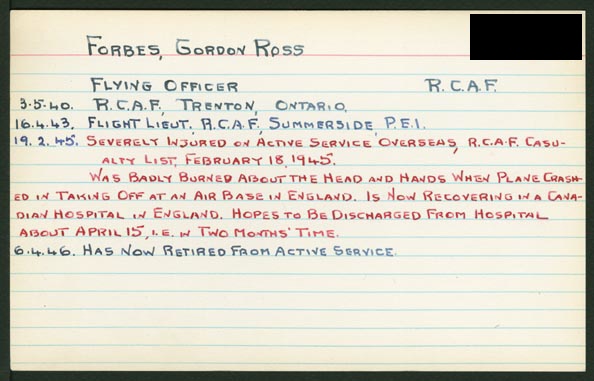 FORBES, GORDON ROSS
FLYING OFFICER R.C.A.F.
3.5.40. R.C.A.F., TRENTON, ONTARIO.
16.4.43. FLIGHT LIEUT., R.C.A.F., SUMMERSIDE, P.E.I.
19.2.45. SEVERELY INJURED ON ACTIVE SERVICE OVERSEAS, R.C.A.F. CASU-
ALTY LIST, FEBRUARY 18, 1945.
WAS BADLY BURNED ABOUT THE HEAD AND HANDS WHEN PLANE CRASH-
ED IN TAKING OFF AT AN AIR BASE IN ENGLAND. IS NOW RECOVERING IN A CANA-
DIAN HOSPITAL IN ENGLAND. HOPES TO BE DISCHARGED FROM HOSPITAL
ABOUT APRIL 15, I.E. IN TWO MONTHS' TIME.
6.4.46. HAS NOW RETIRED FROM ACTIVE SERVICE.